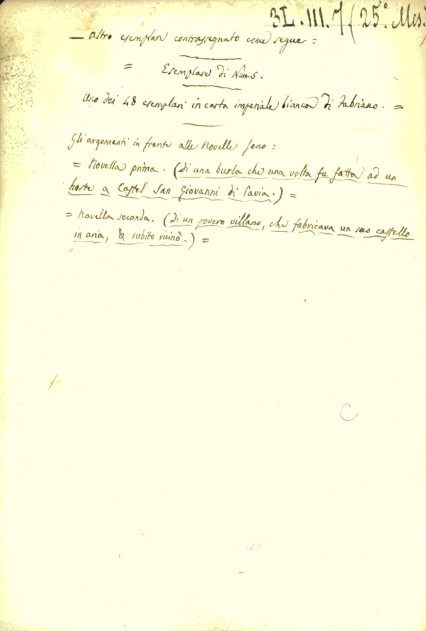 3L.III.7(25º Mes.
— Altro esemplare contrassegnato come segue:
= Esemplare di Num. 5.
Uno dei 48 esemplari in carta imperiale bianca di Fabriano. =
Gli argomenti in fronte alle Novelle sono:
= Novella prima. (Di una burla che una volta fu fatta ad un
hoste a Castel San Giovanni di Pavia.) =
= Novella seconda. (Di un povero villano, che fabricava un suo castello
in aria, & subito ruinò.) =
C